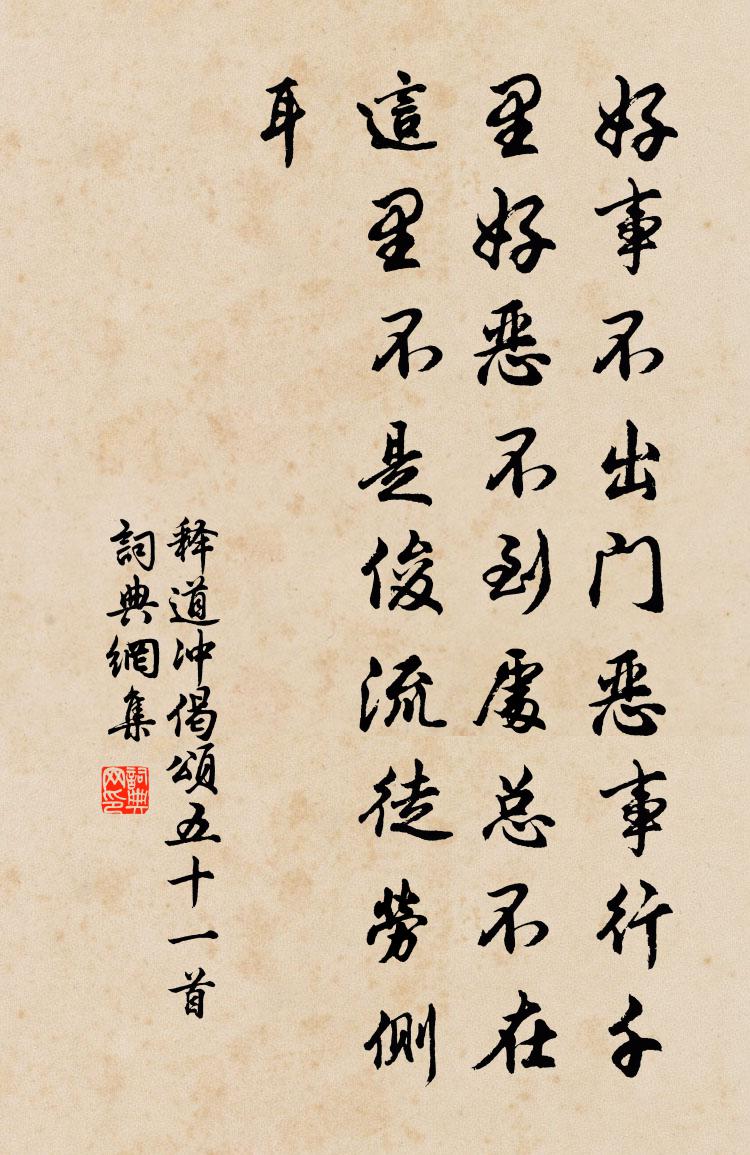 好事不出门恶事行千
里好恶不到處总不在
這里不是俊流徒勞側
耳
释道冲偈頌五十一首
詞典網集
詞典网印